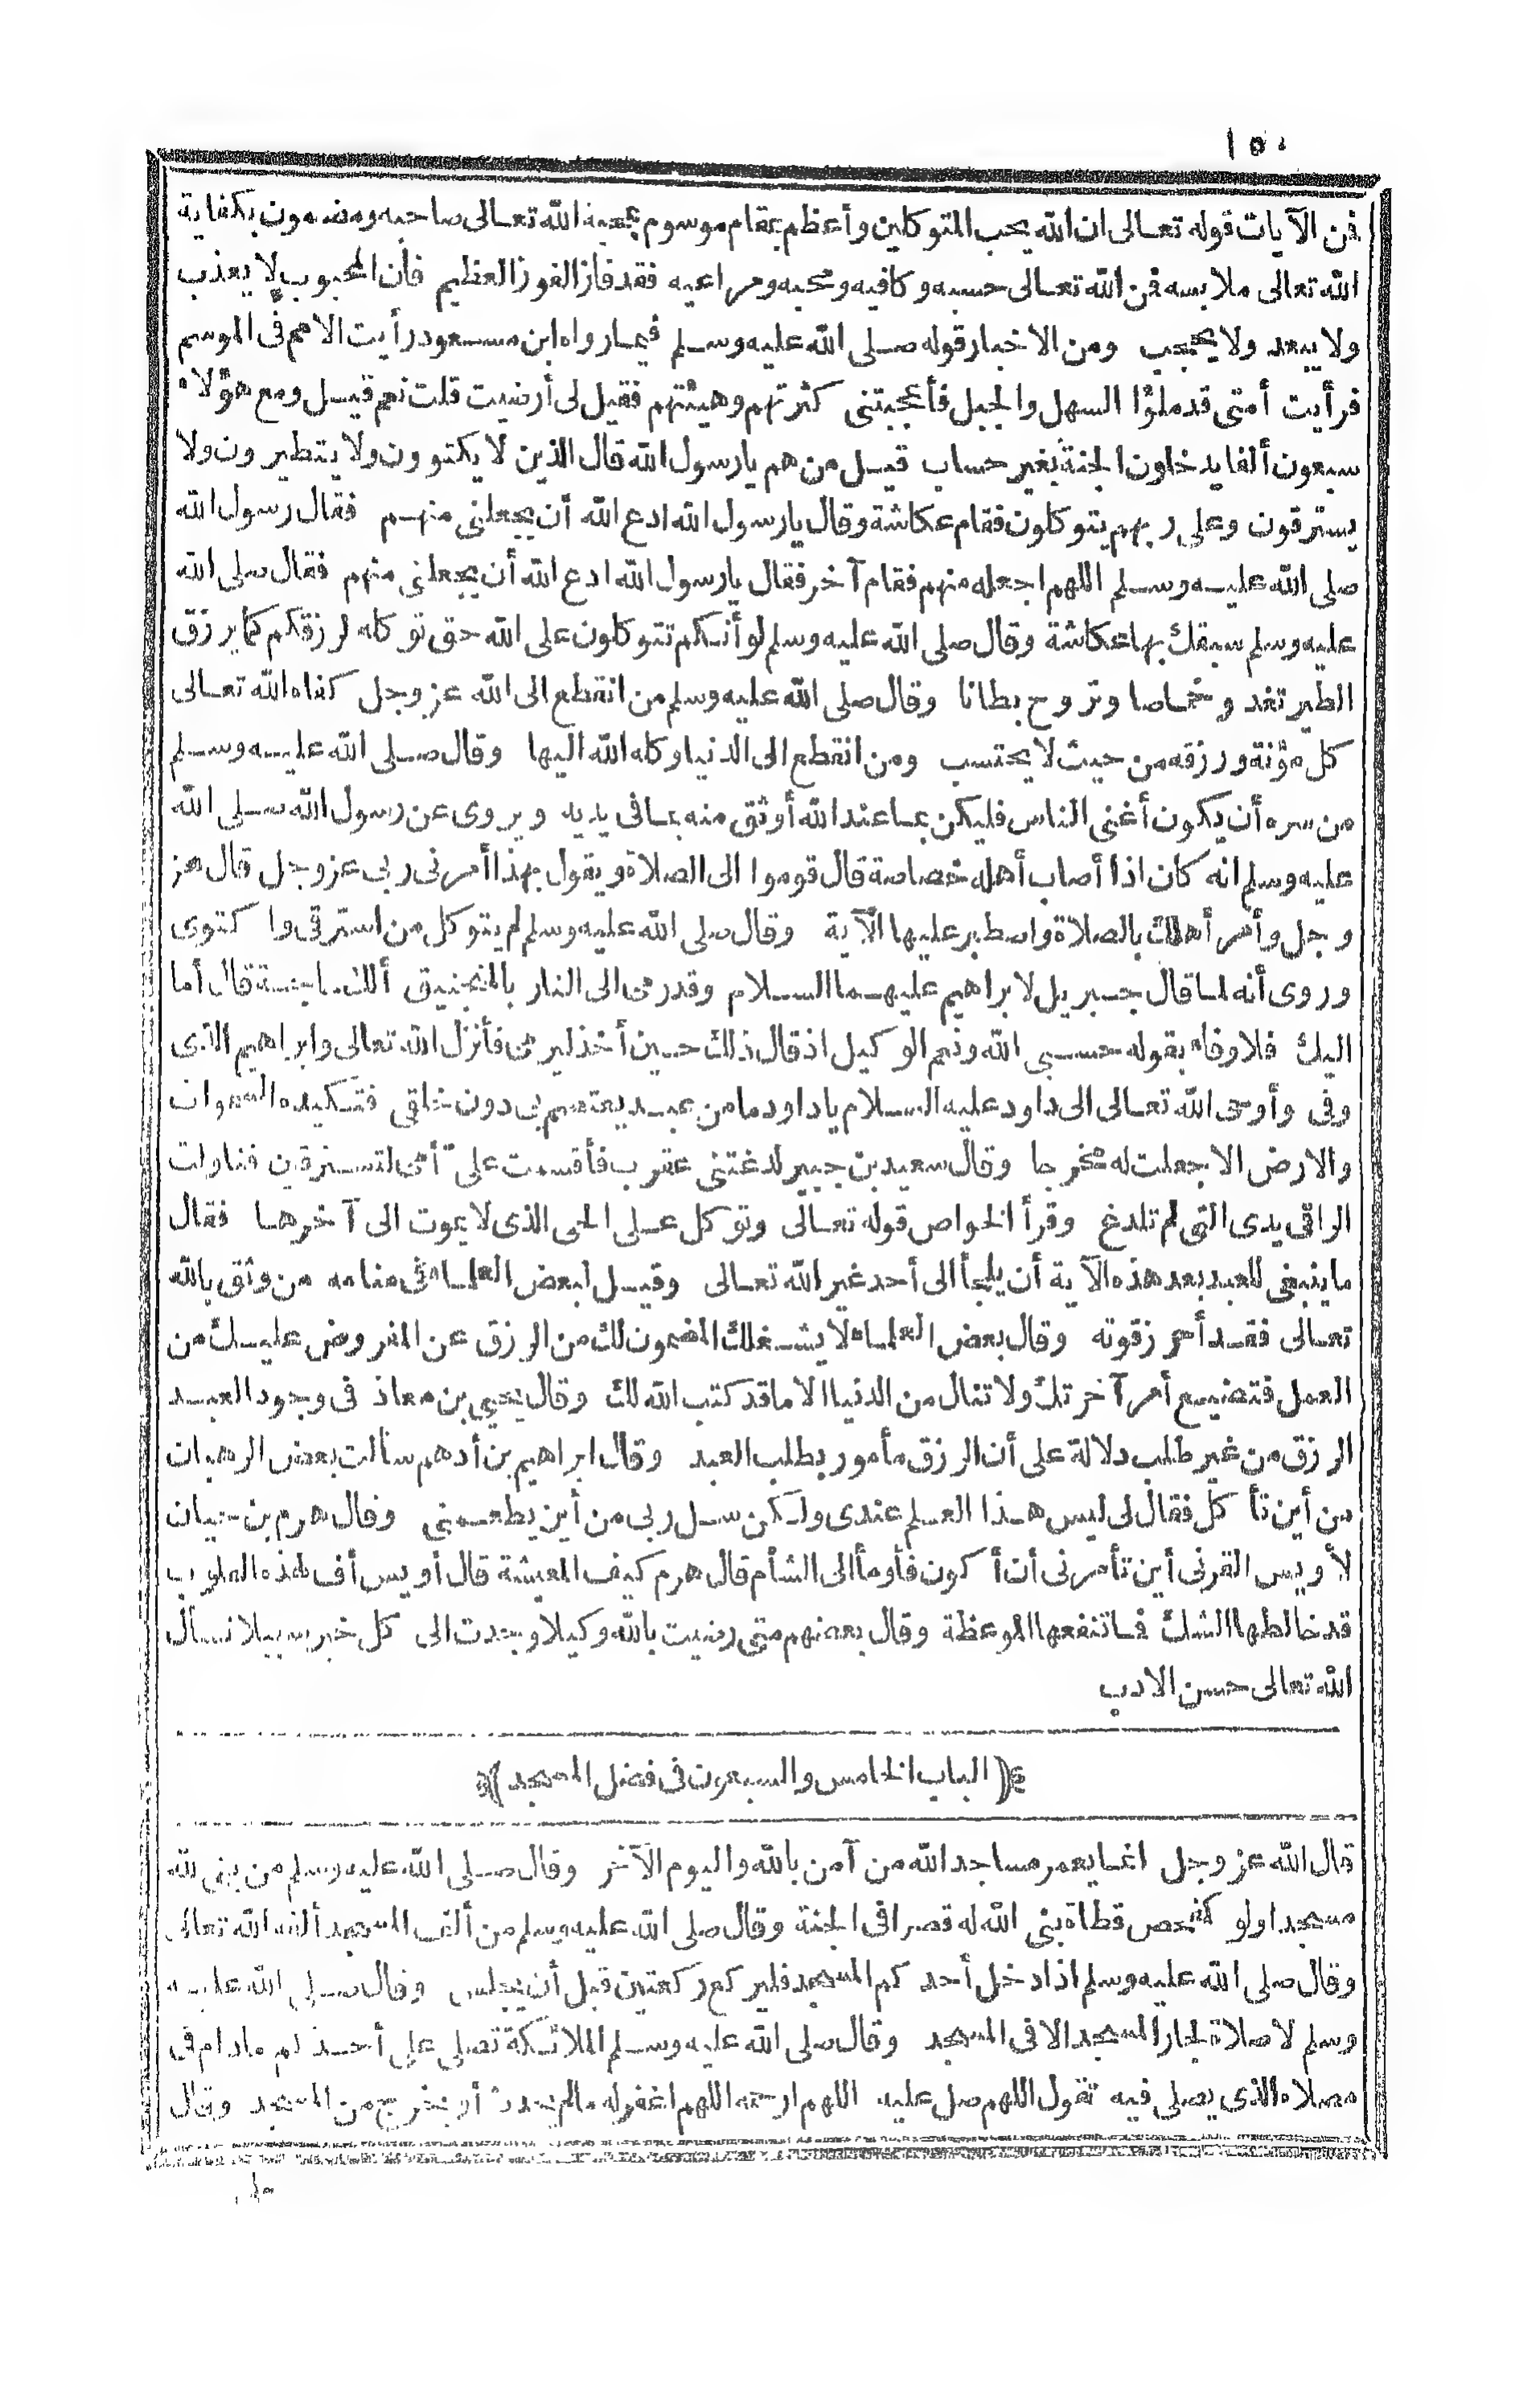 ١٥٠
فن الآيات قوله تعالى ان الله يحب المتوكلين وأعظم بمقام موسوم بمحبة الله تعالى صاحبه ومضمون بكفاية
الله تعالى ملابسه فن الله تعالى حسبه وكافيه ومحبه ومراعيه فقد فاز الفوز العظيم فان المحبوب لا يعذب
ولا يبعد ولا يحجب ومن الاخبار قوله صلى الله عليه وسلم فيما رواه ابن مسعود رأيت الامم فى الموسم
فرأيت أمتى قد ملؤا السهل والجبل فأعجبتنى كثرتهم وهيئتهم فقيل لى أرضيت قلت نعم قيل ومع هؤلاء
سبعون ألفا يدخلون الجنة بغير حساب قيل من هم يا رسول الله قال الذين لا يكتوون ولا يتطيرون ولا
يسترقون وعلى ربهم يتوكلون فقام عكاشة وقال يا رسول الله ادع الله أن يجعلنى منهم فقال رسول الله
صلى الله عليه وسلم اللهم اجعله منهم فقام آخر فقال يا رسول الله ادع الله أن يجعلنى منهم فقال صلى الله
عليه وسلم سبقك بها عكاشة وقال صلى الله عليه وسلم لو أنكم تتوكلون على الله حق توكله لرزقكم كما يرزق
الطير تغدو خماصا وتروح بطانا وقال صلى الله عليه وسلم من انقطع الى الله عز وجل كفاه الله تعالى
كل مؤنة ورزقه من حيث لا يحتسب ومن انقطع الى الدنيا وكله الله اليها وقال صلى الله عليه وسلم
من سره أن يكون أغنى الناس فليكن بما عند الله أوثق منه بما فى يديه ويروى عن رسول الله صلى الله
عليه وسلم انه كان اذا أصاب أهله خصاصة قال قوموا الى الصلاة ويقول بهذا أمرنى ربى عز وجل قال عز
وجل وأمر أهلك بالصلاة واصطبر عليها الآية وقال صلى الله عليه وسلم لم يتوكل من استرقى وا كتوى
وروى أنه لما قال جبريل لابراهيم عليهما السلام وقد رمى الى النار بالمنجنيق ألك حاجة قال أما
اليك فلا وفاء بقوله حسبى الله ونعم الوكيل اذ قال ذلك حين أخذ ليرمى فأنزل الله تعالى وابراهيم الذى
وفى وأوحى الله تعالى الى داود عليه السلام يا داود ما من عبد يعتصم بى دون خلقى فتكيده السموات
والارض الا جعلت له مخرجا وقال سعيد بن جبير لدغتنى عقرب فأقسمت على أمى لتسترقين فناولت
الراقى يدى التى لم تلدغ وقرأ الخواص قوله تعالى وتوكل على الحى الذى لا يموت الى آخرها فقال
ما ينبغى للعبد بعد هذه الآية أن يلجأ الى أحد غير الله تعالى وقيل لبعض العلماء فى منامه من وثق بالله
تعالى فقد أحرز قوته وقال بعض العلماء لا يشغلك المضمون لك من الرزق عن المفروض عليك من
العمل فتضيع أمر آخرتك ولا تنال من الدنيا الا ما قد كتب الله لك وقال يحيى بن معاذ فى وجود العبد
الرزق من غير طلب دلالة على أن الرزق مأمور بطلب العبد وقال ابراهيم بن أدهم سألت بعض الرهبان
من أين تأكل فقال لى ليس هذا العلم عندى ولكن سل ربى من أين يطعمنى وقال هرم بن حيان
لأويس القرنى أين تأمرنى أن أكون فأومأ الى الشأم قال هرم كيف المعيشة قال أويس أف لهذه القلوب
قد خالطها الشك فما تنفعها الموعظة وقال بعضهم متى رضيت بالله وكيلا وجدت الى كل خير سبيلا نسأل
الله تعالى حسن الادب
﴿الباب الخامس والسبعون فى فضل المسجد﴾
قال الله عز وجل انما يعمر مساجد الله من آمن بالله واليوم الآخر وقال صلى الله عليه وسلم من بنى لله
مسجدا ولو كمفحص قطاة بنى الله له قصرا فى الجنة وقال صلى الله عليه وسلم من ألف المسجد ألفه الله تعالى
وقال صلى الله عليه وسلم اذا دخل أحدكم المسجد فليركع ركعتين قبل أن يجلس وقال صلى الله عليه
وسلم لا صلاة لجار المسجد الا فى المسجد وقال صلى الله عليه وسلم الملائكة تصلى على أحدكم ما دام فى
مصلاه الذى يصلى فيه تقول اللهم صل عليه اللهم ارحمه اللهم اغفر له ما لم يحدث أو يخرج من المسجد وقال